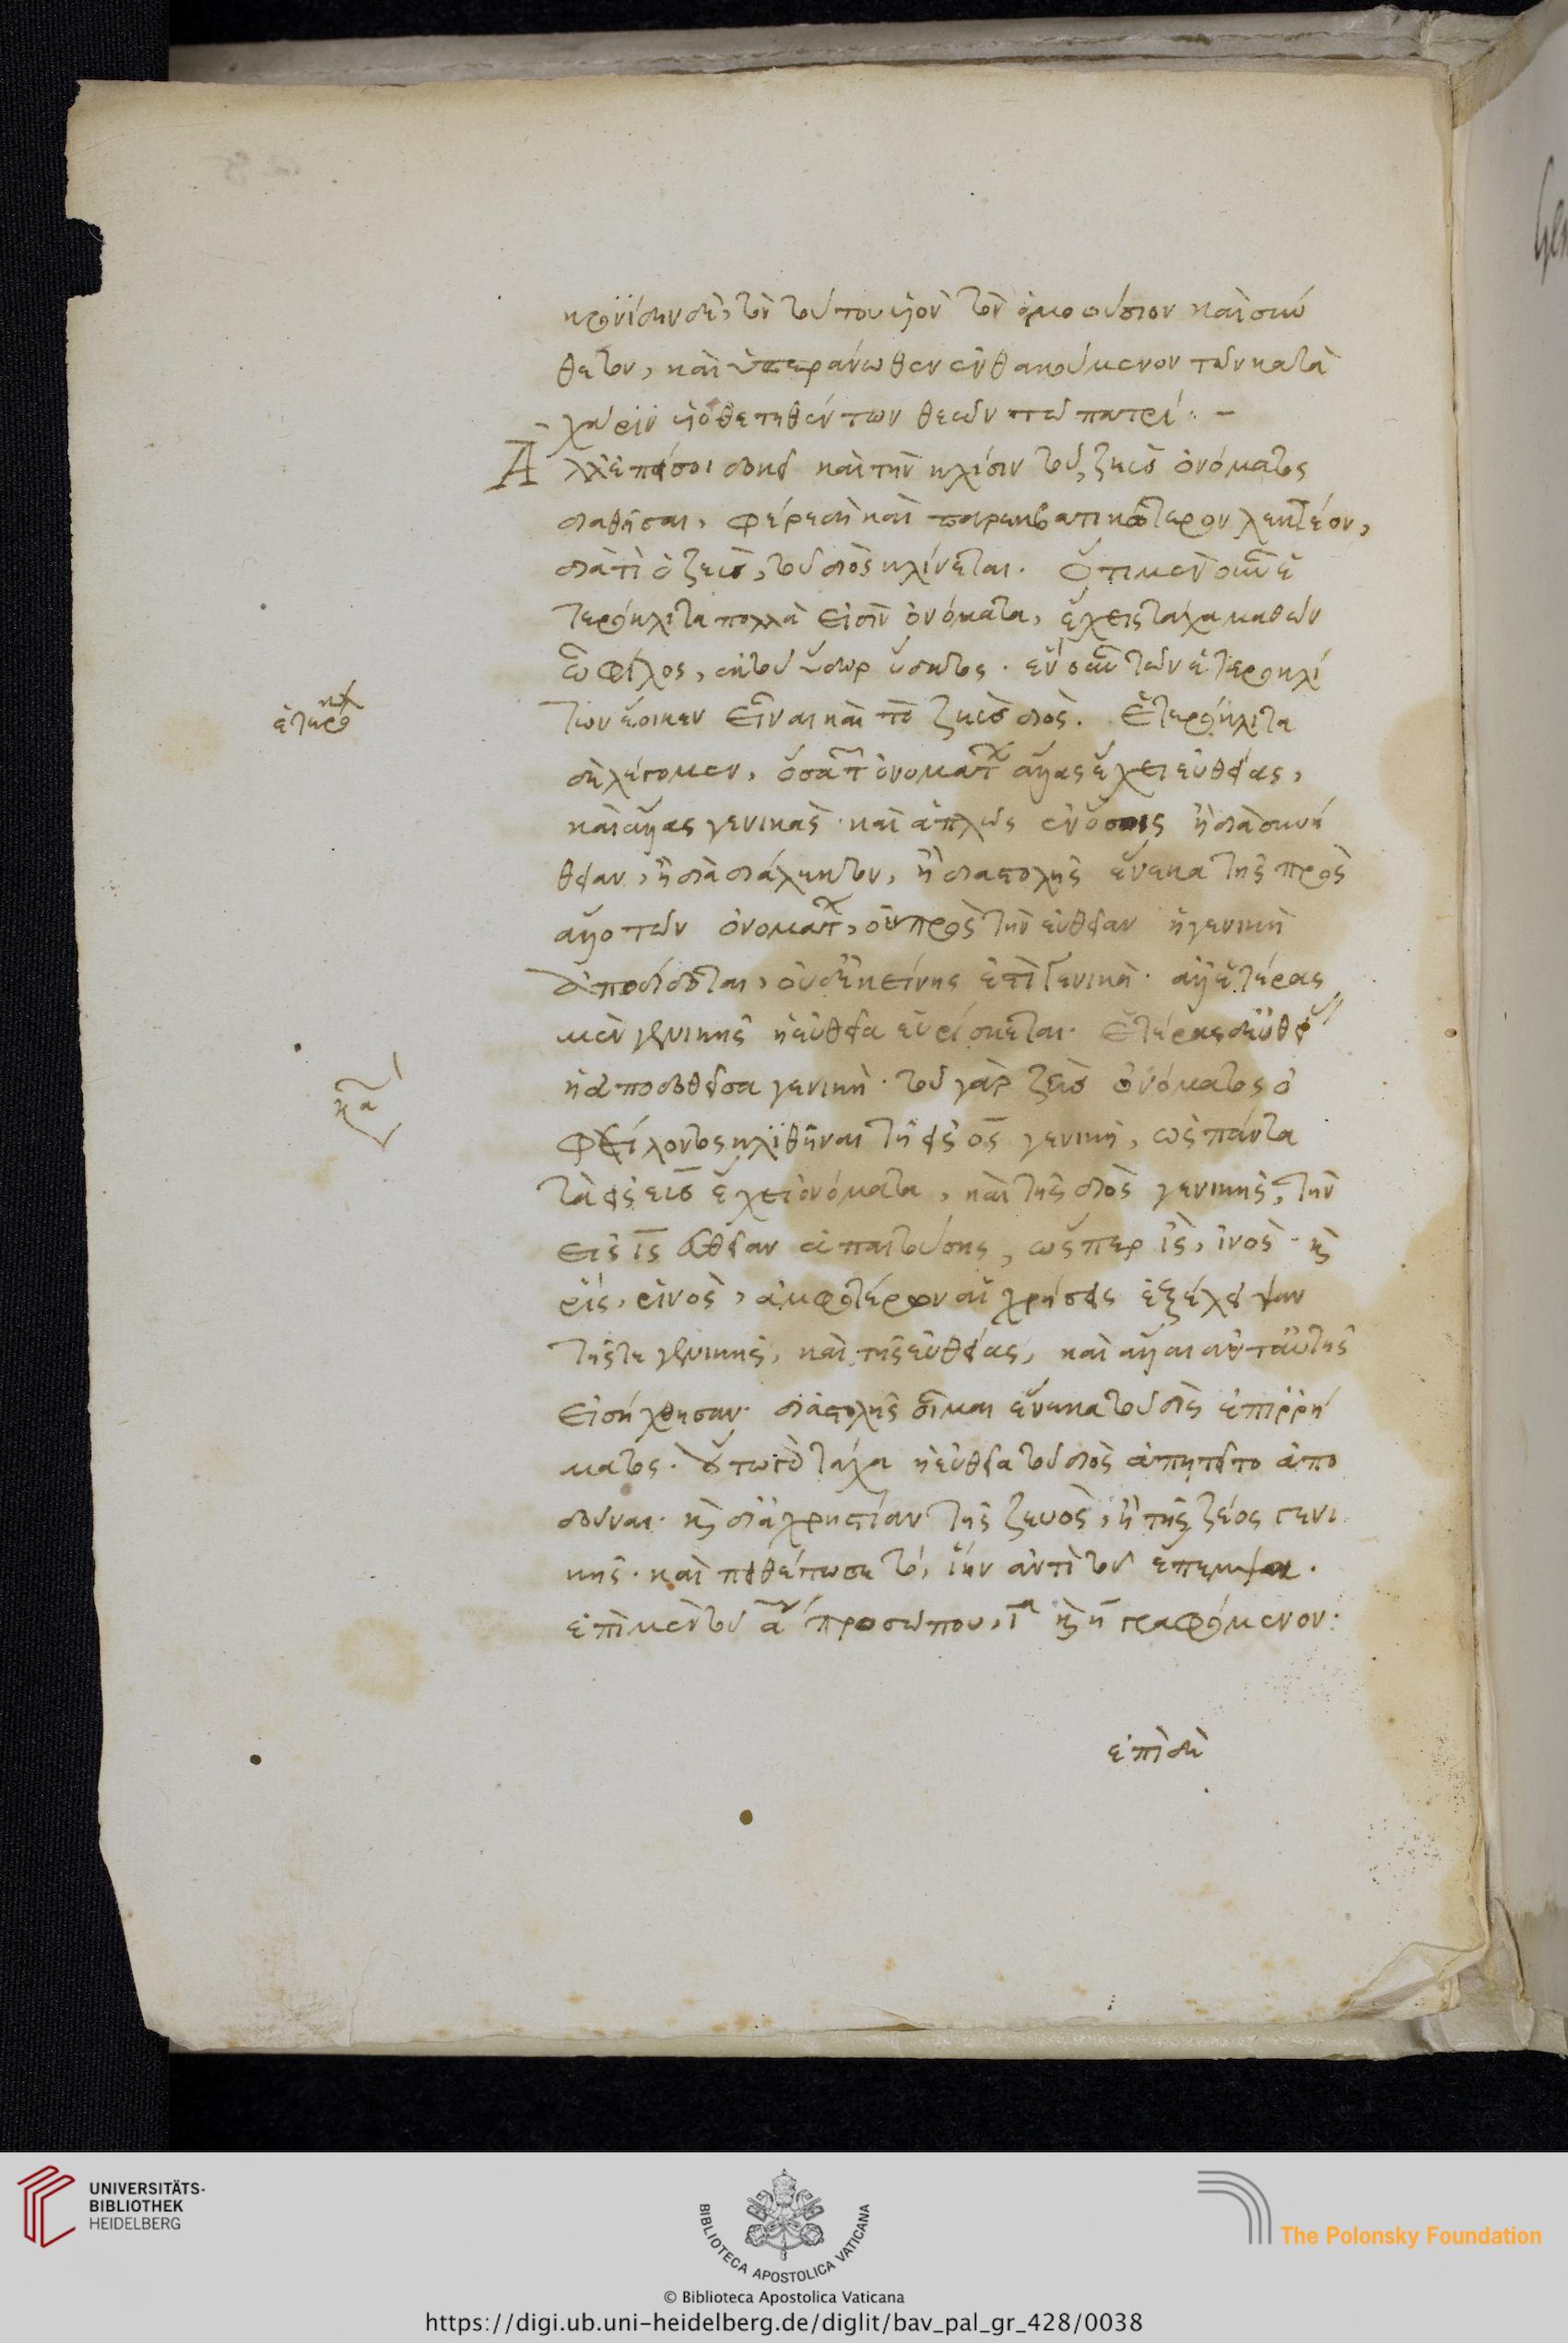 κρονίδην δὲ, τὸν τούτου υἱὸν τὸν ὁμοούσιον καὶ σύν
θετον, καὶ ὑπεράνωθεν ἐνθακούμενον τῶν κατὰ
χάριν υἱοθετηθέντων θεῶν τῷ πατρί. –
Ἀλλ' ἐπεί σοι δοκεῖ καὶ τὴν κλίσιν τοῦ ζεὺς ὀνόματος
μαθῆσαι, φέρε δὴ καὶ παρεκβατικώτερον λεκτέον,
διατὶ ὁ ζεὺς, τοῦ διὸς κλίνεται. ὅτι μὲν οὖν ἑ
τερόκλιτα πολλά εἰσιν ὀνόματα, ἔχεις τάχα μαθὼν
ὦ φίλος, ἐκ τοῦ ὕδωρ ὕδατος. ἓν οὖν τῶν ἑτεροκλί
των ἔοικεν εἶναι καὶ τὸ ζεὺς διός. ἑτερόκλιτα
δὲ λέγομεν, ὅσα τῶν ὀνομάτων ἄλλας ἔχει εὐθείας,
καὶ ἄλλας γενικάς· καὶ ἁπλῶς ἐν ὅσοις ἢ διὰ συνή
θειαν, ἢ διὰ διάλεκτον, ἢ διαστολῆς ἕνεκα τῆς πρὸς
ἄλλο τῶν ὀνομάτων, οὐ πρὸς τὴν εὐθεῖαν ἡ γενικὴ
ἀποδίδοται, οὐδ' ἐκείνης ἐστὶ γενικὴ· ἀλλ' ἑτέρας
μὲν γενικῆς ἡ εὐθεῖα εὑρίσκεται. ἑτέρας δ' εὐθεί
ἡ ἀποδοθεῖσα γενικὴ· τοῦ γὰρ ζεὺς ὀνόματος ὀ
φείλοντος κλιθῆναι τῇ εἰς ος γενικῇ, ὡς πάντα
τὰ εἰς εὺς ἔχει ὀνόματα, καὶ τῆς διὸς γενικῆς, τὴν
εἰς ις εὐθεῖαν ἀπαιτούσης, ὥσπερ ἲς, ἰνός· καὶ
ῥίς, ῥινός, ἀμφοτέρων αἱ χρήσεις ἐξέλειψαν
τῆς τε γενικῆς, καὶ τῆς εὐθείας, καὶ ἄλλαι ἀντ' αὐτῆς
εἰσήχθησαν· διαστολῆς οἶμαι ἕνεκα τοῦ δὶς ἐπιρρή
ματος. οὕτω τὸ τάχα ἡ εὐθεῖα τοῦ διὸς ἀπῃτεῖτο ἀπο
δοῦναι· καὶ δι' ἀχρηστίαν τῆς ζευὸς, ἢ τῆς ζέος γενι
κῆς. καὶ πιθέπωσε τό, ἵην ἀντὶ τοῦ ἔπεμψα.
ἐπὶ μὲν τοῦ α΄ προσώπου, ι καὶ η γραφόμενον·
ἐπὶ δὲ
ἑτερόκλ
κα
UNIVERSITÄTS-
BIBLIOTHEK
HEIDELBERG
BIBLIOTECA APOSTOLICA VATICANA
The Polonsky Foundation
© Biblioteca Apostolica Vaticana
https://digi.ub.uni-heidelberg.de/diglit/bav_pal_gr_428/0038